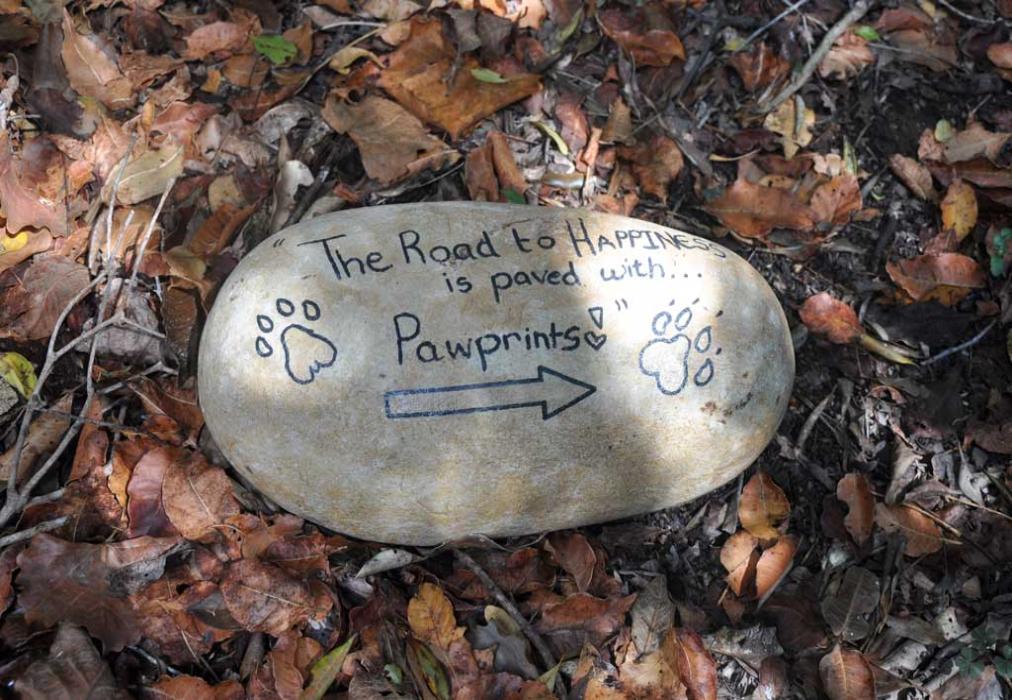 "The Road to HAPPINESS
is paved with...
Pawprints"